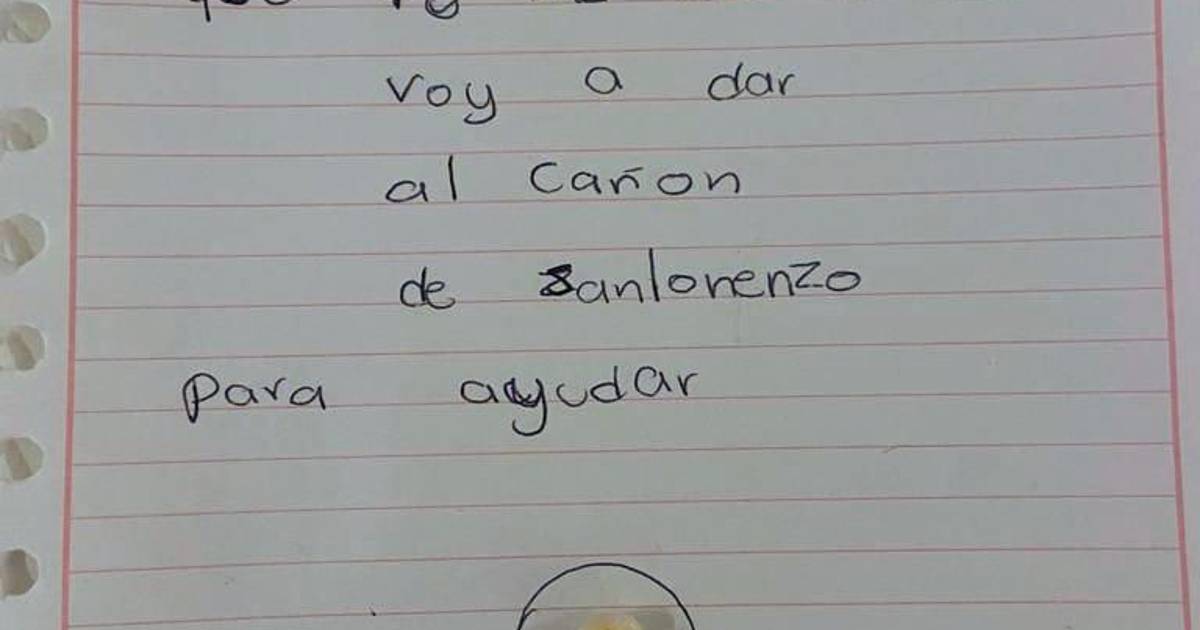 voy a dar
al cañon
de sanlorenzo
para ayudar